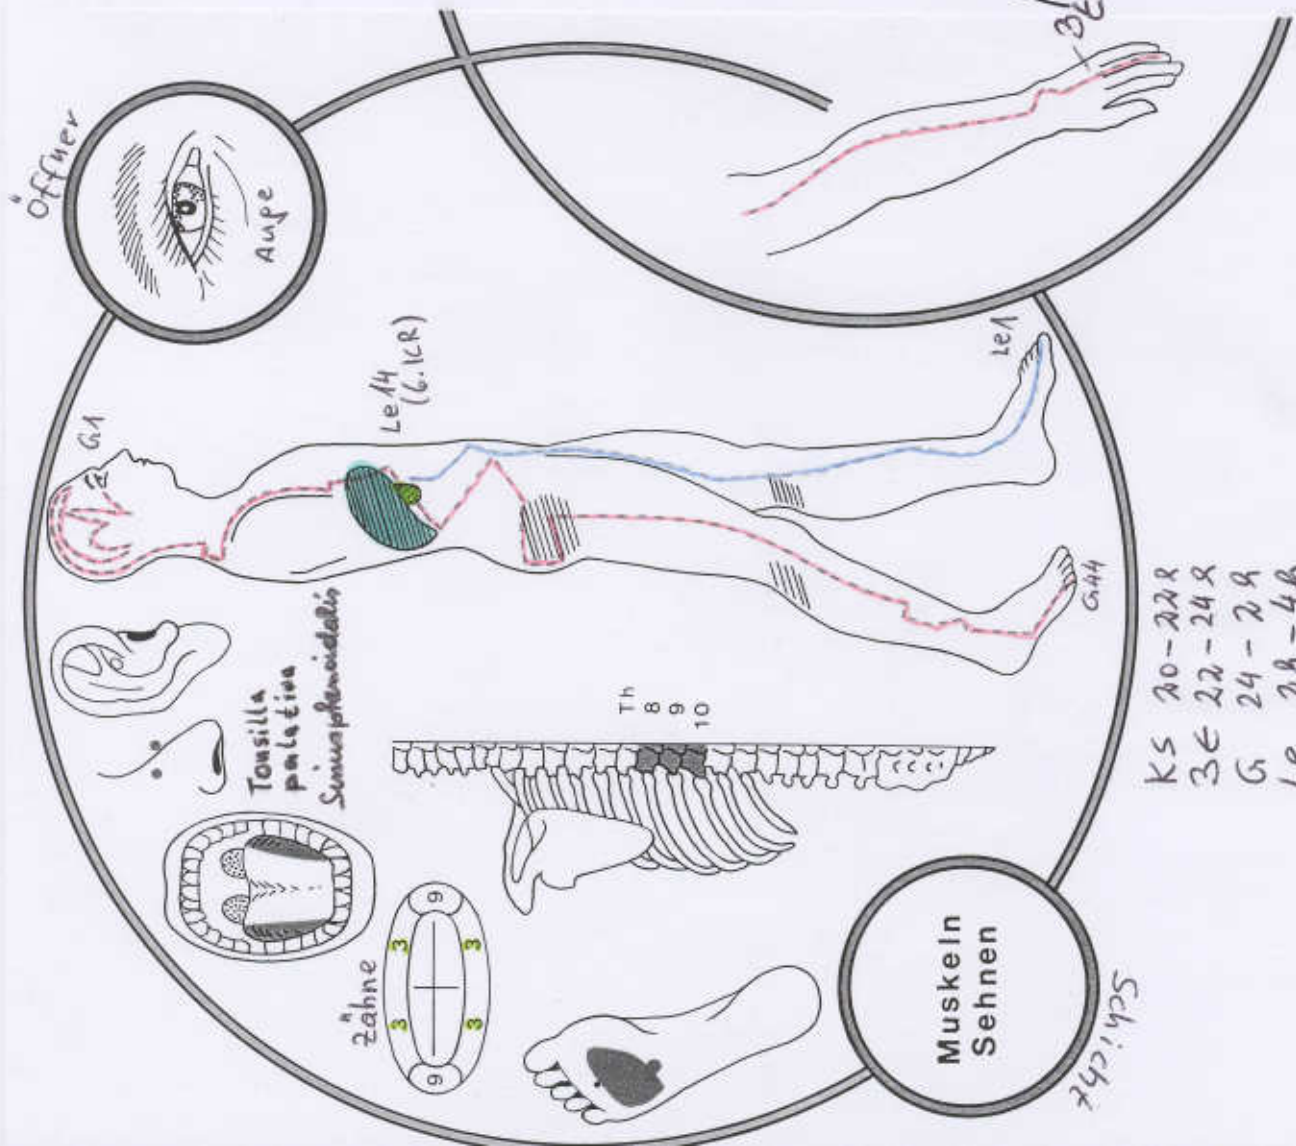 Öffner
Auge
3E
G1
Le 14
(6. ICR)
Le1
G44
Tonsilla
palatina
Sinus sphenoidalis
Zähne
9
3
3
3
3
9
Th
8
9
10
Muskeln
Sehnen
Schicht
KS 20-22h
3E 22-24h
G 24-2h
Le 2h-4h